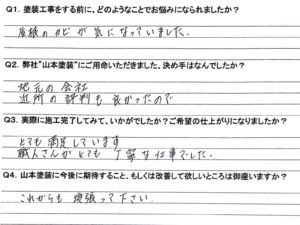 Q1. 塗装工事をする前に、どのようなことでお悩みになられましたか？
屋根のカビが気になっていました.
Q2. 弊社"山本塗装"にご用命いただきました、決め手はなんでしたか？
地元の会社
近所の評判も良かったので
Q3. 実際に施工完了してみて、いかがでしたか？ご希望の仕上がりになりましたか？
とても満足しています
職人さんがとても丁寧な仕事でした.
Q4. 山本塗装に今後に期待すること、もしくは改善して欲しいところは御座いますか？
これからも頑張って下さい.